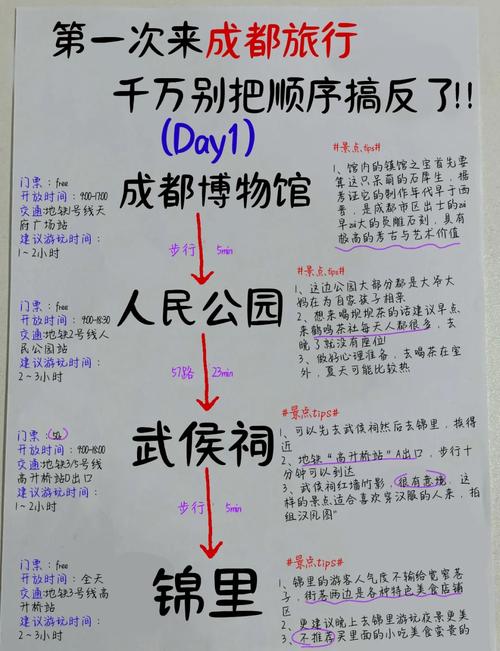 第一次来成都旅行
千万别把顺序搞反了!!
(Day1)
门票：free
开放时间：9:00-17:00
交通地铁1号线天
府广场站
建议游玩时间：
1~2小时
成都博物馆
#景点tips#
1、馆内的镇馆之宝首先要
算这只呆萌的石犀牛，据
考证它的制作年代早于西
晋，是成都市区出土的zui
早zui大的圆雕石刻，具有
极高的考古与艺术价值
步行 5min
门票：free
开放时间：9:00-18:30
交通：地铁2号线人
民公园站
建议游玩时间：
2~3小时
人民公园
#景点tips#
1、这边公园大部分都是大爷大
妈在为自家孩子相亲
2、想来喝坝坝茶的话建议早点
来鹤鸣茶社每天人都很多，去
晚了就没有座位!
3、做好心理准备，去喝茶在室
外，夏天可能比较热
57路 23min
门票：50
开放时间：9:00-18:00
交通地铁3/5号线
高升桥站D出口
建议游玩时间：
1~2小时
武侯祠
#景点tips#
1、可以先去武侯祠然后去锦里，挨得
近
2、地铁“高升桥站”A出口，步行十
分钟可以到达
3、武侯祠红墙竹影，很有意境，这
样的景点适合喜欢穿汉服的人来，拍
组汉风图"
步行 5min
门票：free
开放时间：全天
交通：地铁3号线高
升桥站
建议游玩时间：
2~3小时
锦里
#景点tips#
1、锦里的游客人气度不输给宽窄巷
子，街巷两边是各种特色美食店铺
区
2、更建议晚上去锦里游玩夜景更美
3、不推荐买里面的小吃美食蛮贵的